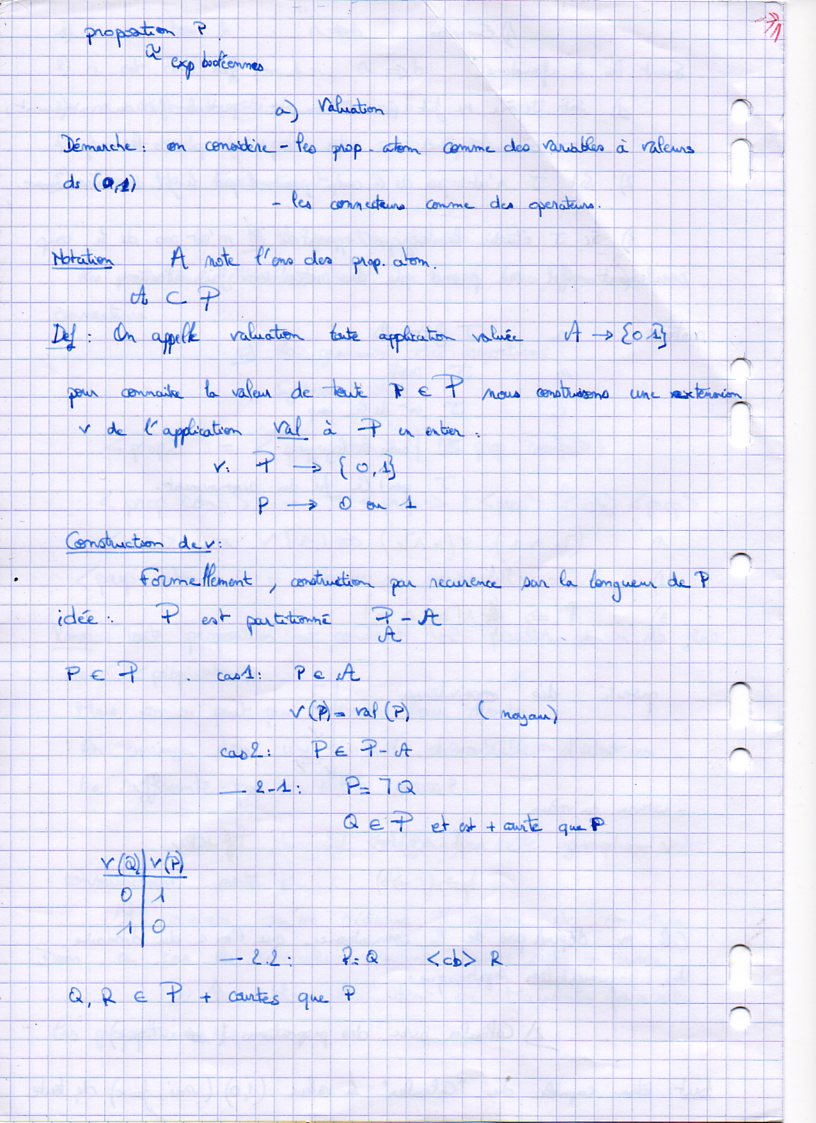 proposition P.
≈ exp booléennes
a) Valuation
Démarche : on considère - les prop. atom comme des variables à valeurs
ds (0,1)
- les connecteurs comme des operateurs.
Notation A note l'ens des prop. atom.
A ⊂ P
Def : On appelle valuation toute application valuée A → {0 1}
pour connaitre la valeur de toute P ∈ P nous construisons une extension
v de l'application val à P en entier :
v: P → {0,1}
P → 0 ou 1
Construction de v:
Formellement, construction par recurence sur la longueur de P
idée : P est partitionné P - A
A
P ∈ P . cas 1: P ∈ A
v(P) = val(P) (noyau)
cas 2: P ∈ P - A
— 2-1: P = ⅂Q
Q ∈ P et est + courte que P
v(Q) | v(P)
0 | 1
1 | 0
— 2.2: P = Q <cb> R
Q, R ∈ P + courtes que P